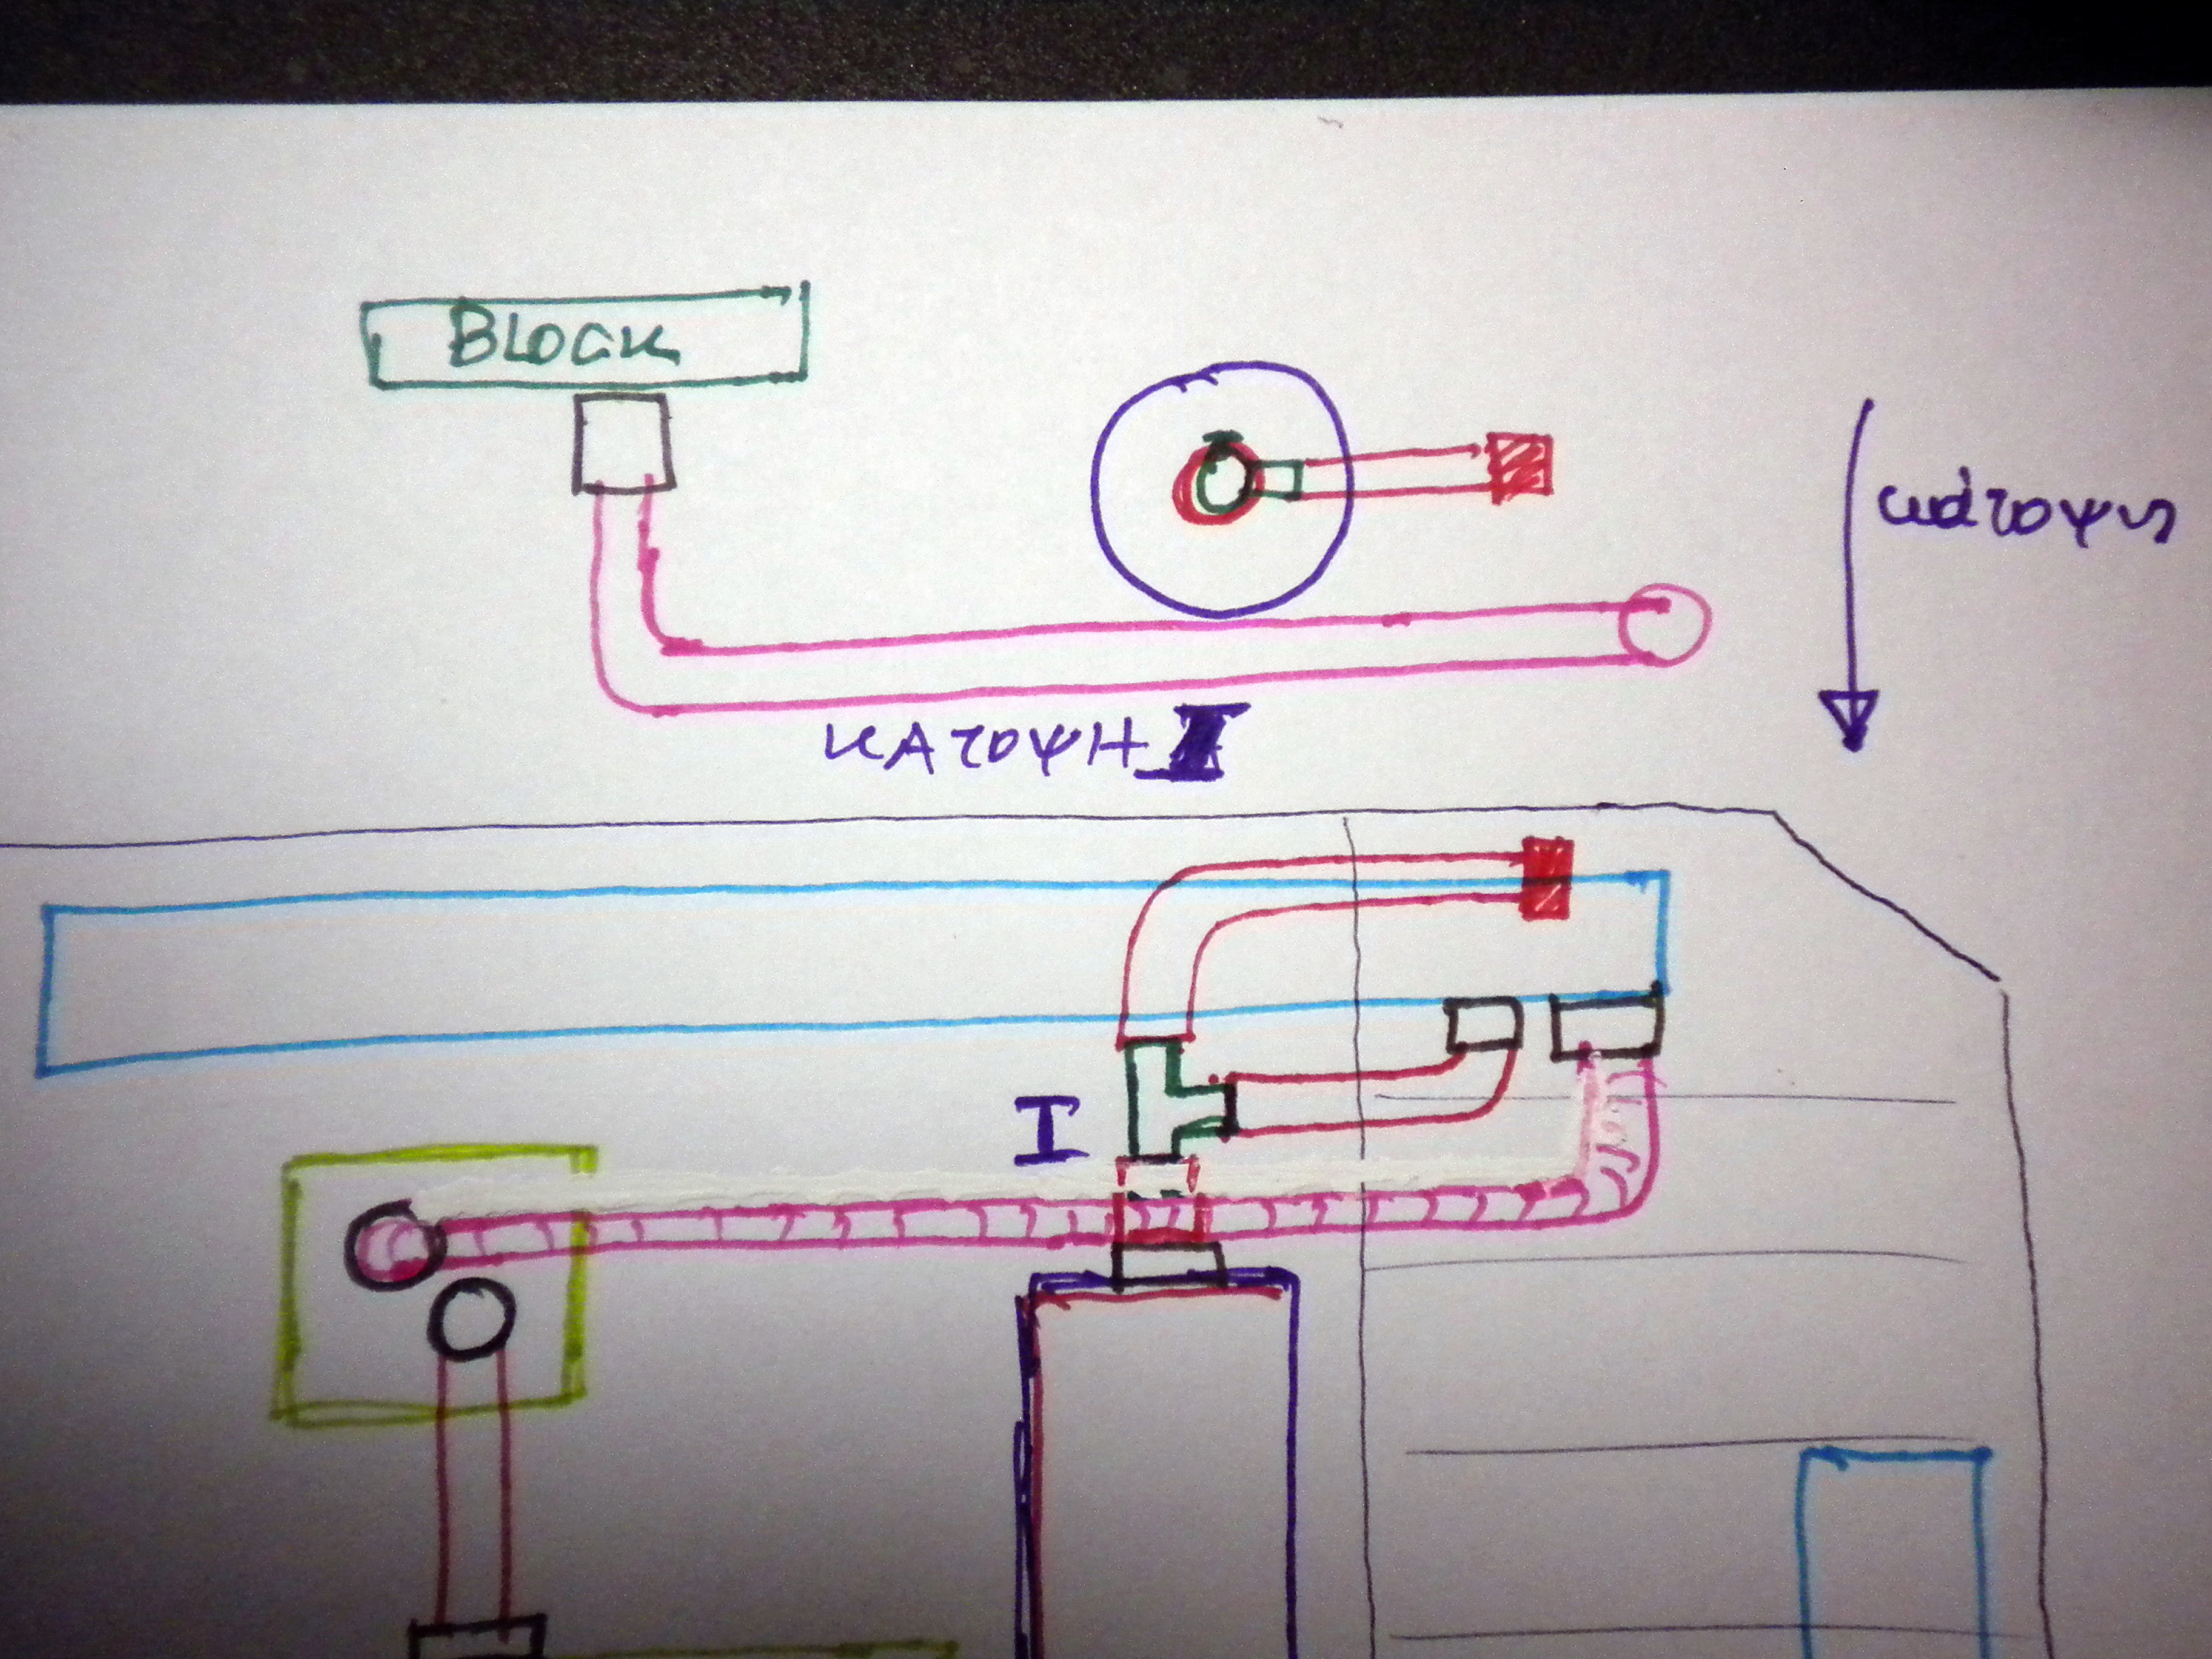 BLOCK
κάτοψη
ΚΑΤΟΨΗ II
I